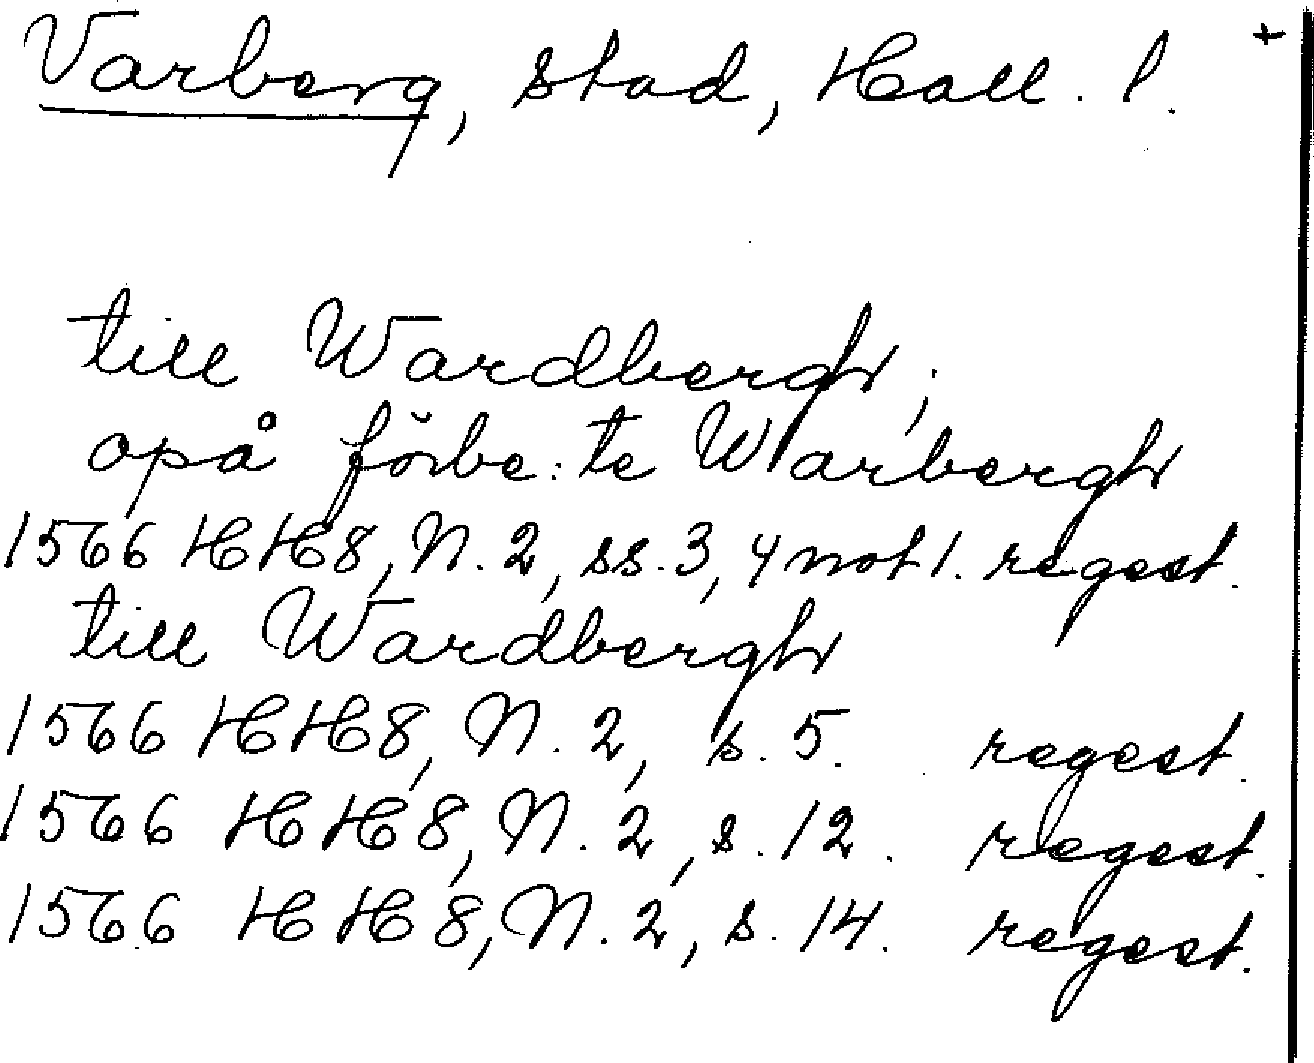 Varberg, stad, Hall. l. +
till Wardbergh;
opå förbe:te Warbergh
1566 HH8, N. 2, ss. 3, 4 not 1. regest.
till Wardbergh
1566 HH8, N. 2, s. 5. regest.
1566 HH8, N. 2, s. 12. regest.
1566 HH8, N. 2, s. 14. regest.